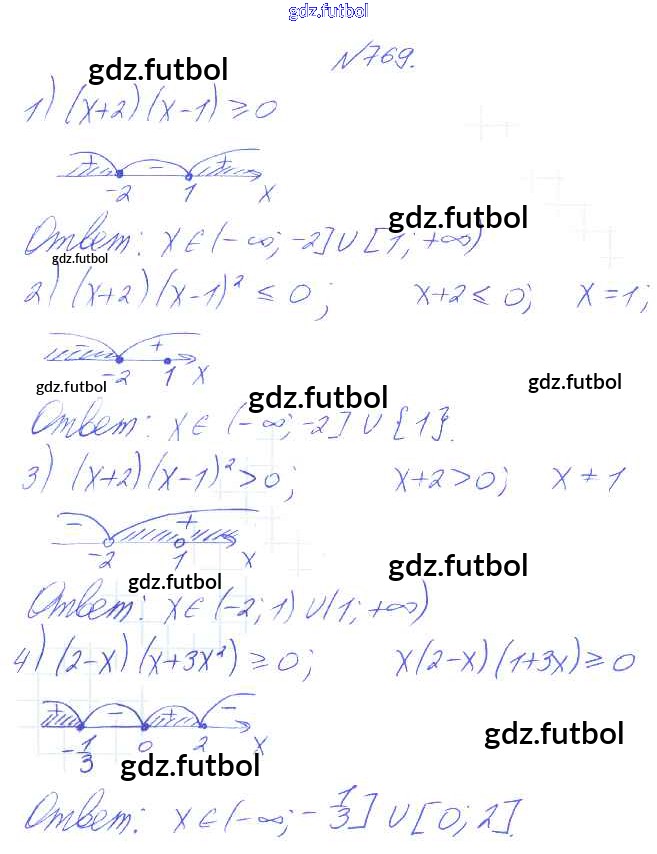 gdz.futbol
№769.
gdz.futbol
1) (x+2)(x-1) ≥ 0
+ - +
-2 1 x
gdz.futbol
Ответ: x ∈ (-∞; -2] ∪ [1; +∞)
gdz.futbol
2) (x+2)(x-1)² ≤ 0; x+2 ≤ 0; x = 1;
- +
-2 1 x
gdz.futbol gdz.futbol gdz.futbol
Ответ: x ∈ (-∞; -2] ∪ {1}.
3) (x+2)(x-1)² > 0; x+2 > 0; x ≠ 1
- +
-2 1 x
gdz.futbol gdz.futbol
Ответ: x ∈ (-2; 1) ∪ (1; +∞)
4) (2-x)(x+3x²) ≥ 0; x(2-x)(1+3x) ≥ 0
+ - + -
-1/3 0 2 x
gdz.futbol gdz.futbol
Ответ: x ∈ (-∞; -1/3] ∪ [0; 2].